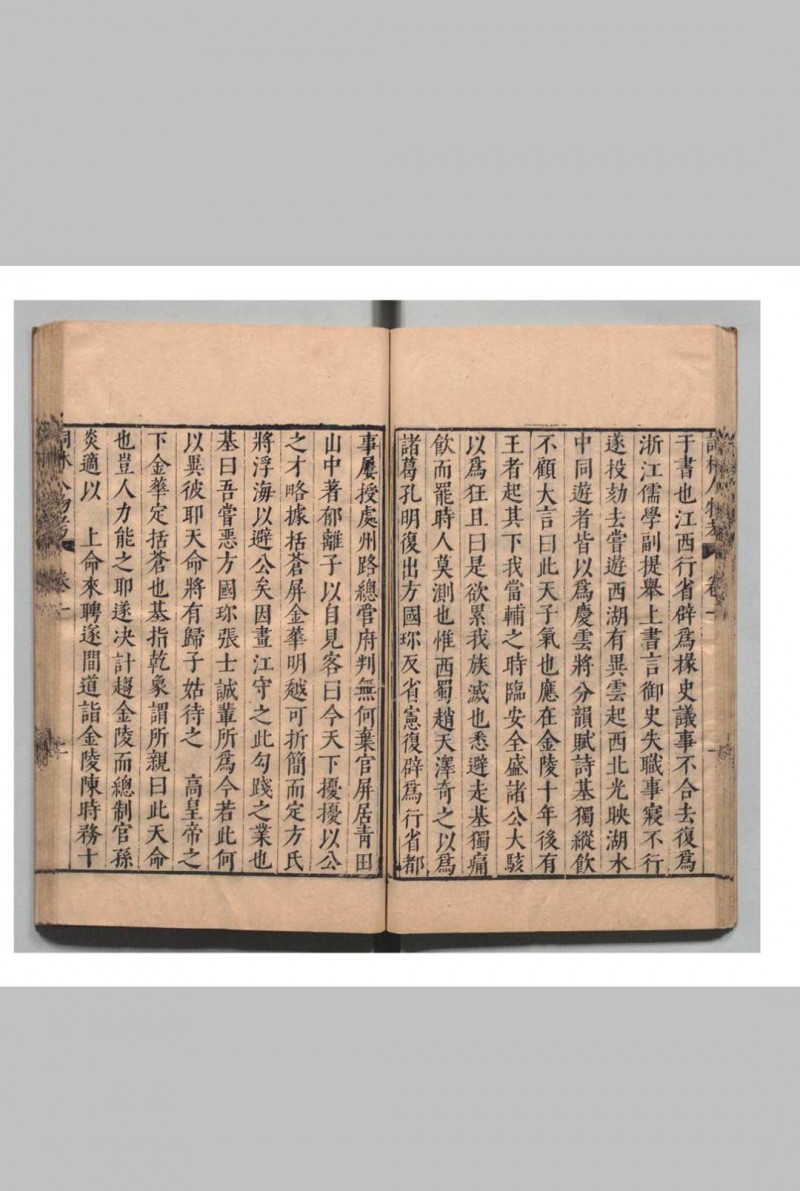 詞林人物考 卷一
于書也江西行省辟爲掾史議事不合去復爲
浙江儒學副提舉上書言御史失職事寢不行
遂投劾去嘗遊西湖有異雲起西北光映湖水
中同遊者皆以爲慶雲將分韻賦詩基獨縱飲
不顧大言曰此天子氣也應在金陵十年後有
王者起其下我當輔之時臨安全盛諸公大駭
以爲狂且曰是欲累我族滅也悉避走基獨痛
飲而罷時人莫測也惟西蜀趙天澤奇之以爲
諸葛孔明復出方國珎反省憲復辟爲行省都
事屢授處州路總管府判無何棄官屏居青田
山中著郁離子以自見客曰今天下擾擾以公
之才略據括蒼屏金華明越可折簡而定方氏
將浮海以避公矣因畫江守之此勾踐之業也
基曰吾嘗悪方國珎張士誠輩所爲今若此何
以異彼耶天命將有歸子姑待之 高皇帝之
下金華定括蒼也基指乾象謂所親曰此天命
也豈人力能之耶遂决計趨金陵而總制官孫
炎適以 上命來聘遂間道詣金陵陳時務十
詞林人物考 卷一